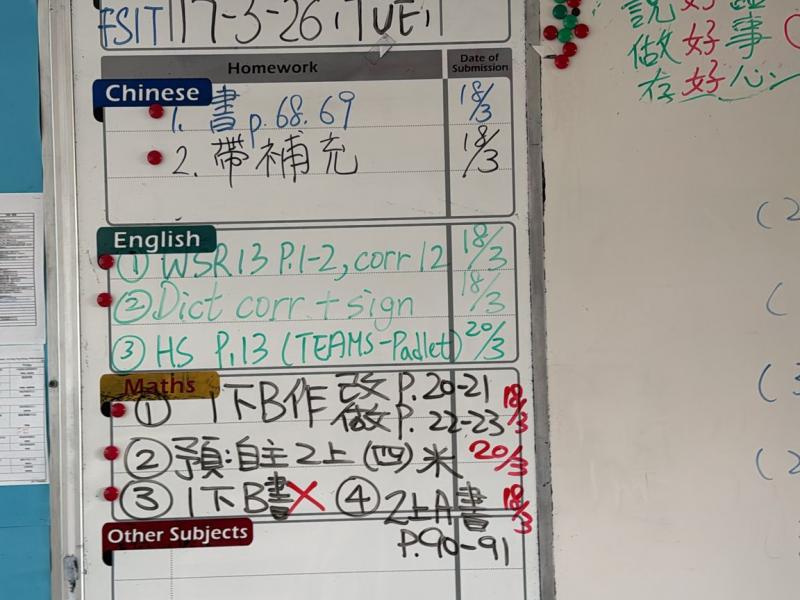 17-3-26, TUE,
Homework
Date of Submission
Chinese
1. 書 p.68.69 18/3
2. 帶補充 18/3
English
① WSR13 P.1-2, corr 12 18/3
② Dict corr + sign 18/3
③ HS P.13 (TEAMS-Padlet) 20/3
Maths
① 1下B作 改 P.20-21 18/3
做 P.22-23
② 預:自主2上(四)米 20/3
③ 1下B書 X ④ 2上A書 18/3
P.90-91
Other Subjects
做好事
存好心